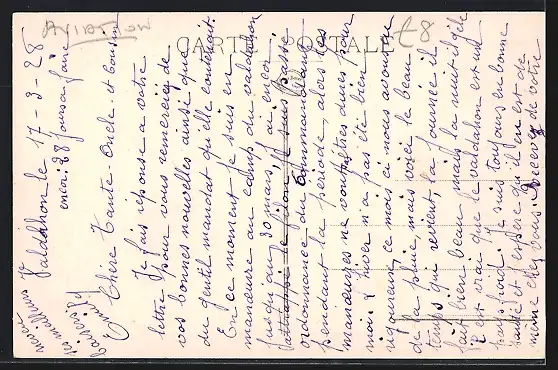 AVIATION
CARTE POSTALE
Valdahon le 17-3-28
encore 28 jours a faire
Chère Tante-Oncle-et Cousin
Je fais réponse a votre
lettre pour vous remercier de
vos bonnes nouvelles ainsi que
du gentil mandat qu'elle contenait.
En ce moment je suis en
manœuvre au camp du valdahon
jusqu'au 30 mars, j'ai encore
le filon je suis passé
ordonnance du Commandant
pendant la période, alors les
manœuvres ne vont êtres dures pour
moi. L'hiver n'a pas été bien
rigoureux, ce mois ci nous avons eu
de la pluie, mais voici le beau
temps qui revient, la journée il
fait bien beau, mais la nuit il gèle
il est vrai que le valdahon est un
pays froid. Je suis toujours en bonne
santé et espère qu'il en est de
même chez vous. Recevez de votre